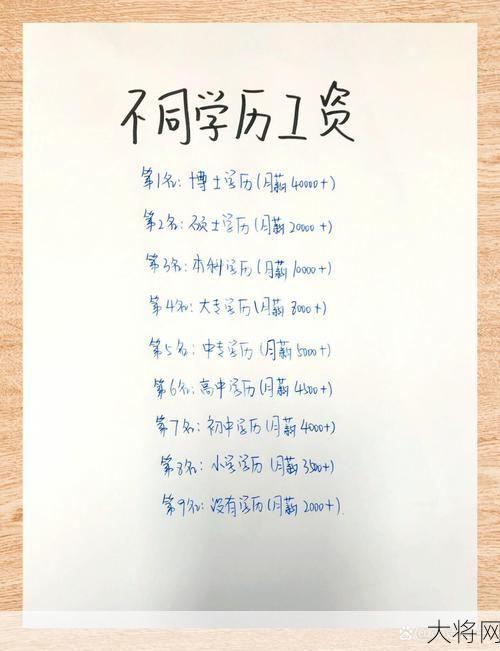 不同学历工资
第1名:博士学历(月薪40000+)
第2名:硕士学历(月薪20000+)
第3名:本科学历(月薪10000+)
第4名:大专学历(月薪8000+)
第5名:中专学历(月薪5000+)
第6名:高中学历(月薪4500+)
第7名:初中学历(月薪4000+)
第8名:小学学历(月薪3500+)
第9名:没有学历(月薪2000+).
大将网